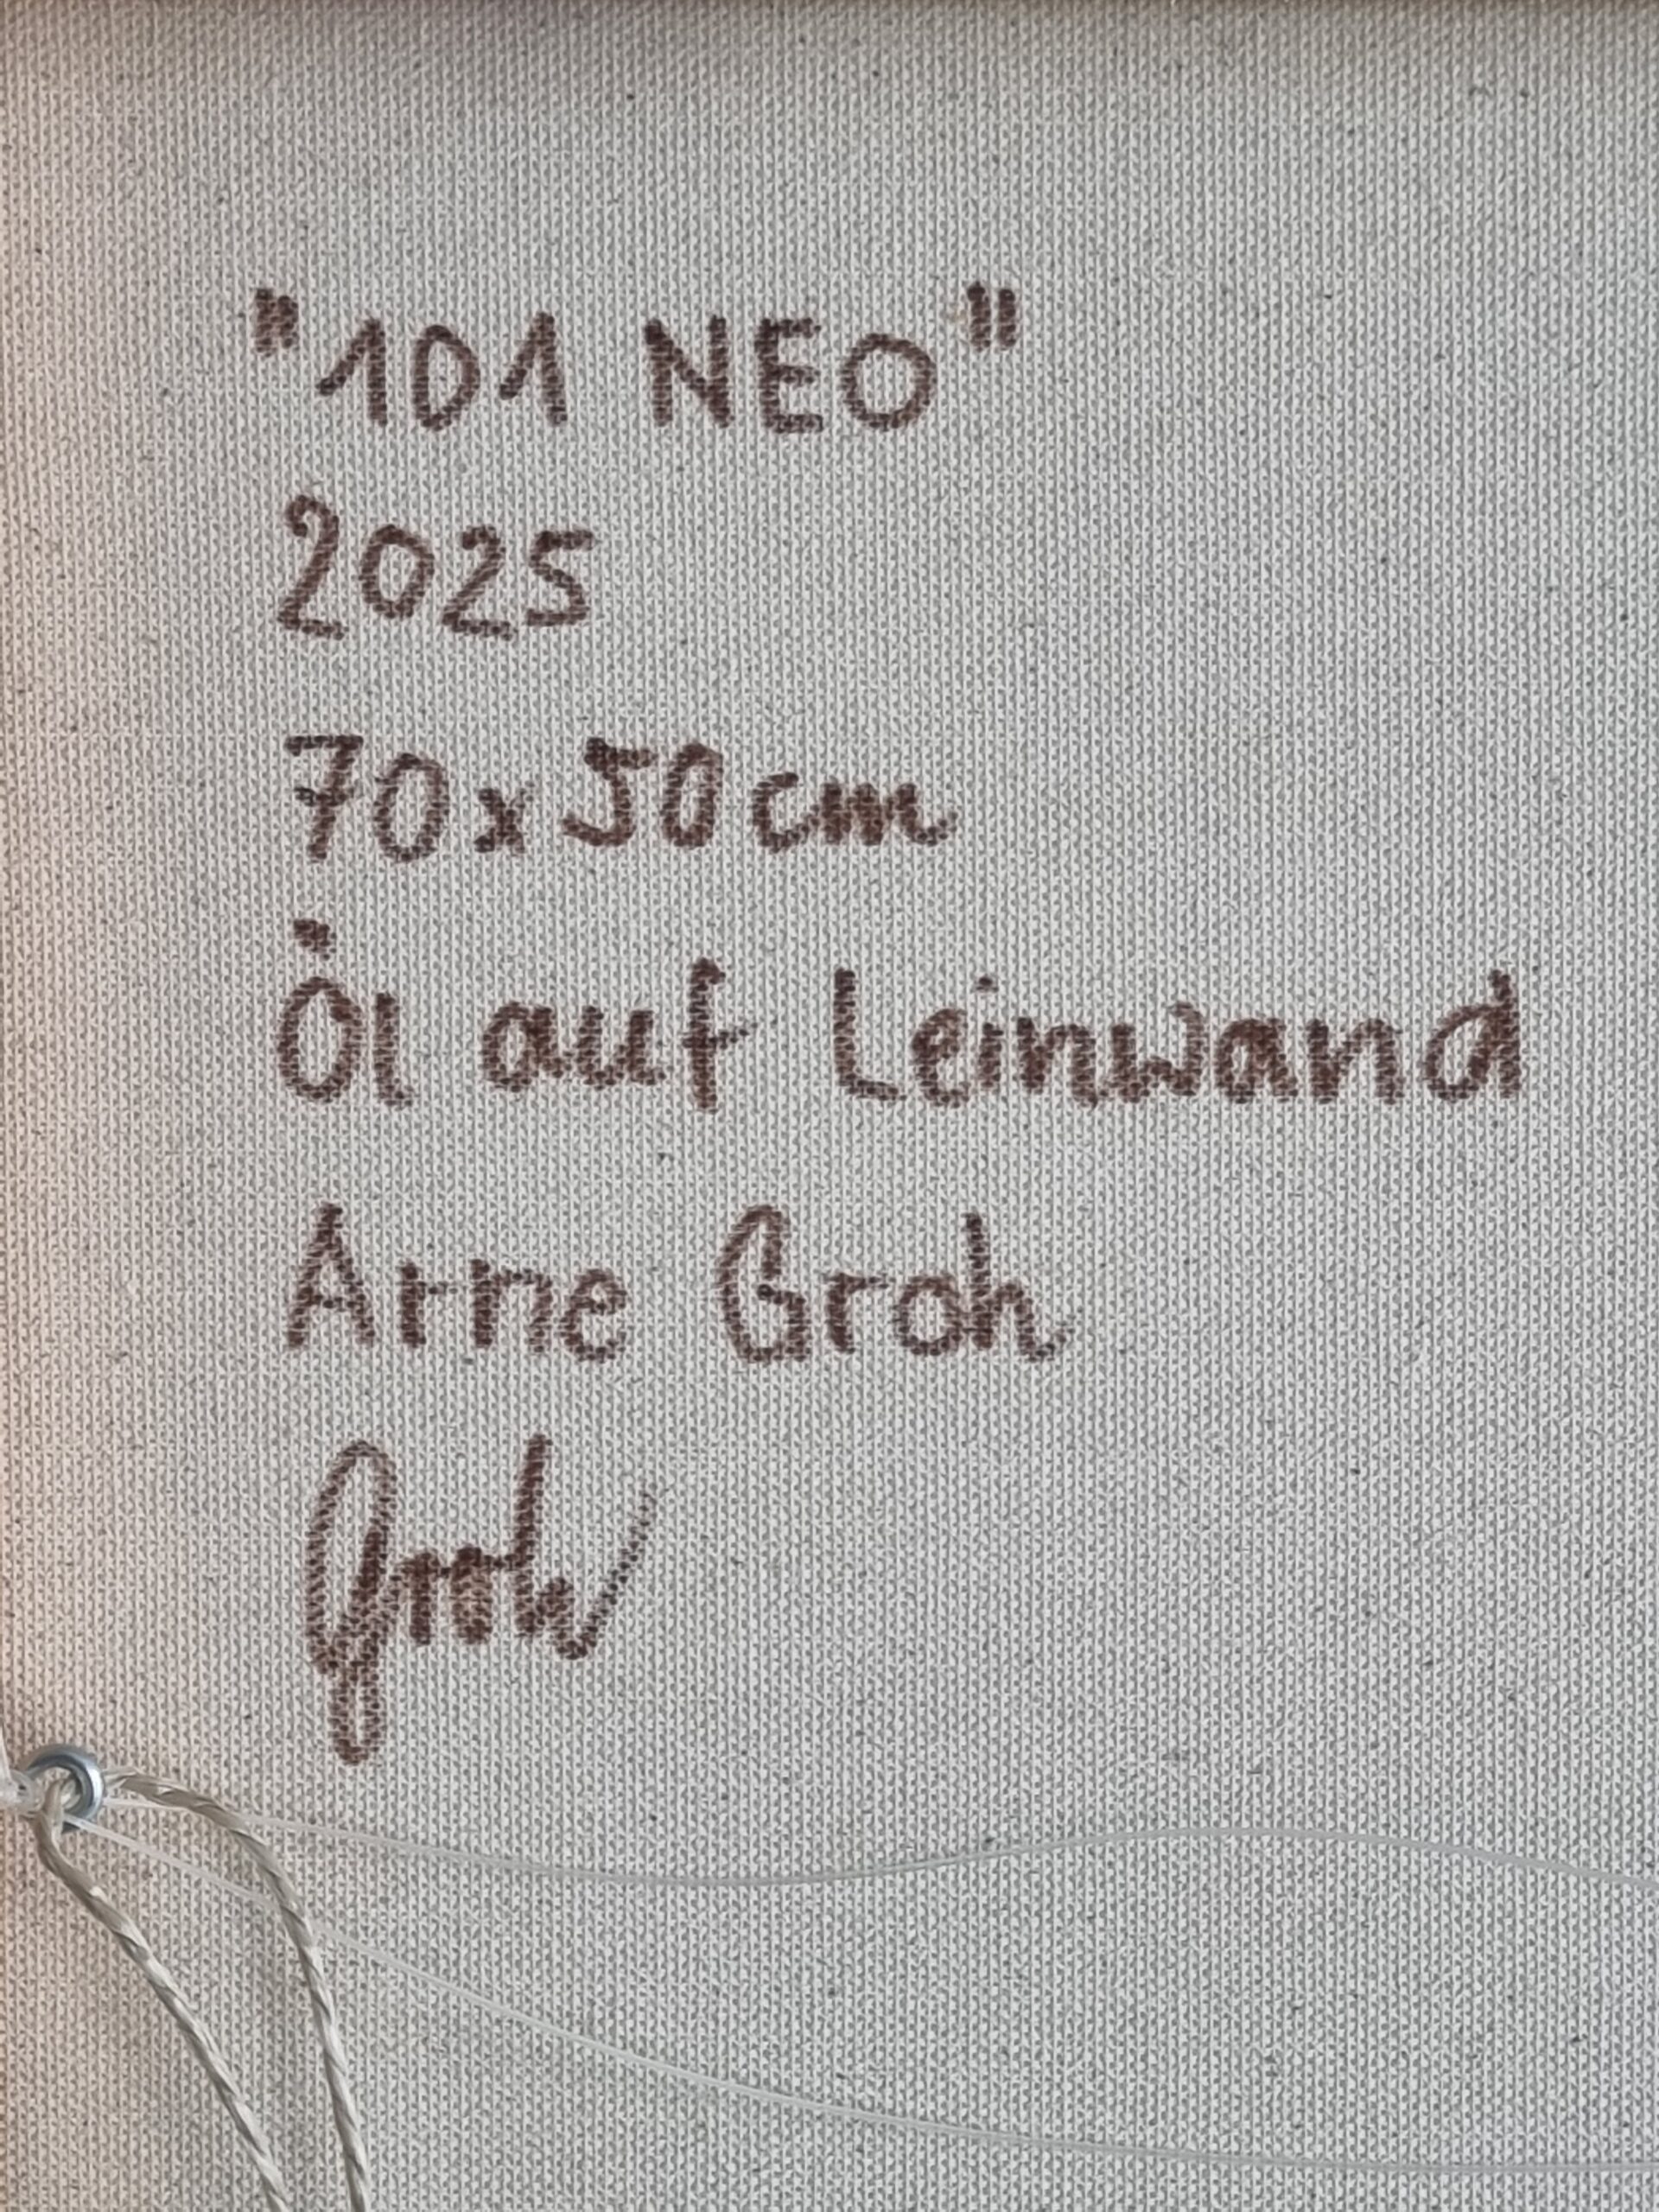 "101 NEO"
2025
70x50cm
Öl auf Leinwand
Arne Groh
Groh